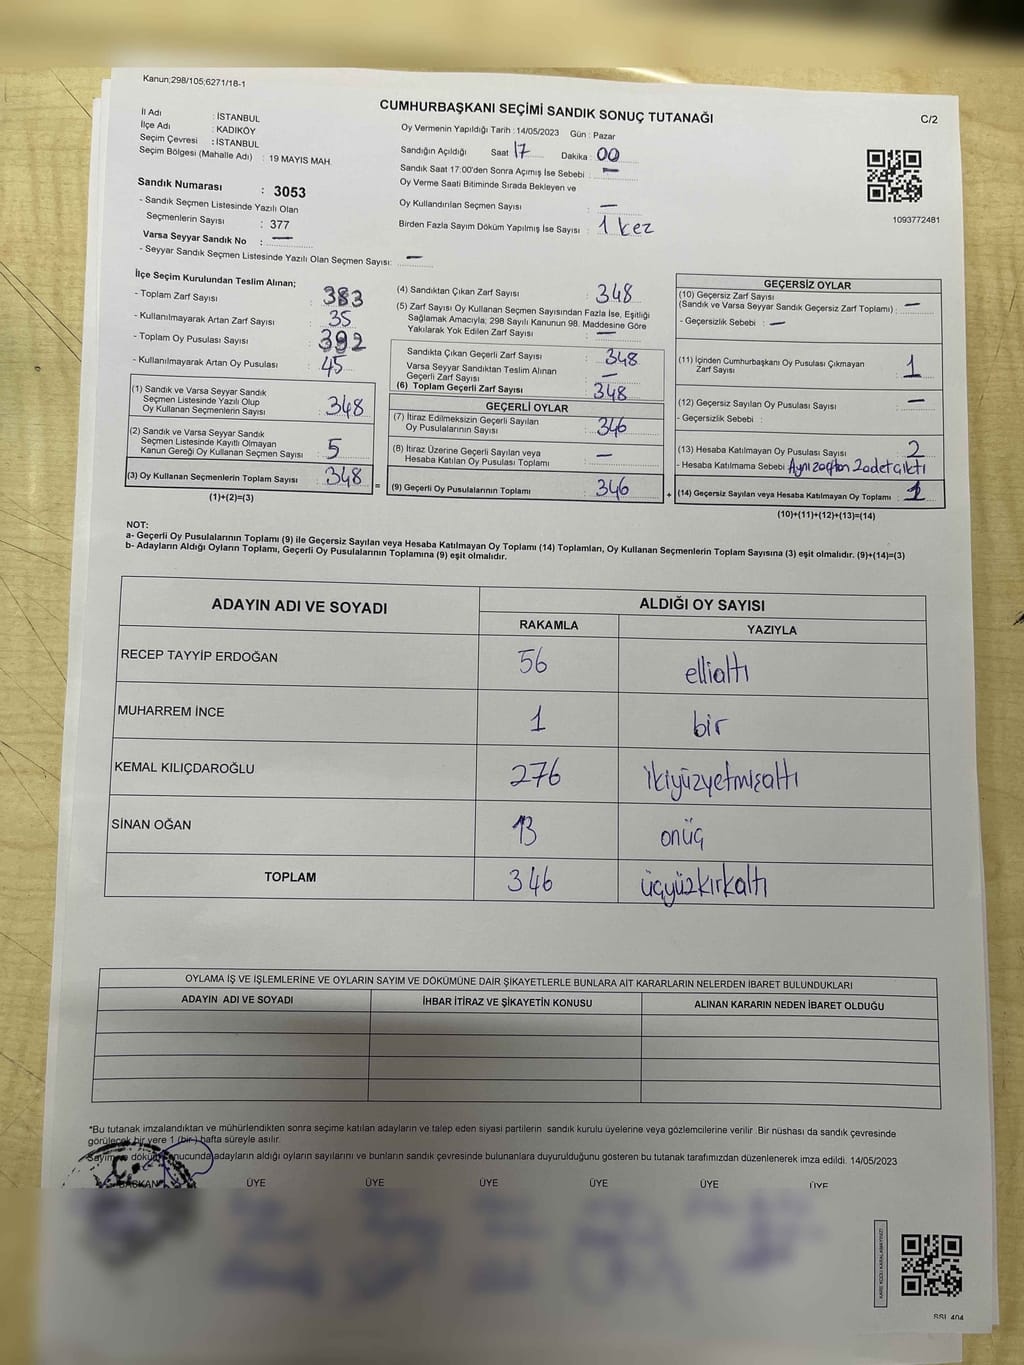 Kanun;298/105;6271/18-1
CUMHURBAŞKANI SEÇİMİ SANDIK SONUÇ TUTANAĞI
C/2
İl Adı : İSTANBUL
İlçe Adı : KADIKÖY
Seçim Çevresi : İSTANBUL
Seçim Bölgesi (Mahalle Adı) : 19 MAYIS MAH.
Oy Vermenin Yapıldığı Tarih : 14/05/2023 Gün : Pazar
Sandığın Açıldığı Saat 17 Dakika : 00
Sandık Saat 17:00'den Sonra Açımış İse Sebebi : —
Oy Verme Saati Bitiminde Sırada Bekleyen ve
Oy Kullandırılan Seçmen Sayısı : —
Birden Fazla Sayım Döküm Yapılmış İse Sayısı : 1 kez
1093772481
Sandık Numarası : 3053
- Sandık Seçmen Listesinde Yazılı Olan
Seçmenlerin Sayısı : 377
Varsa Seyyar Sandık No : —
- Seyyar Sandık Seçmen Listesinde Yazılı Olan Seçmen Sayısı: —
İlçe Seçim Kurulundan Teslim Alınan;
- Toplam Zarf Sayısı : 383
- Kullanılmayarak Artan Zarf Sayısı : 35
- Toplam Oy Pusulası Sayısı : 392
- Kullanılmayarak Artan Oy Pusulası : 45
(1) Sandık ve Varsa Seyyar Sandık
Seçmen Listesinde Yazılı Olup
Oy Kullanan Seçmenlerin Sayısı : 348
(2) Sandık ve Varsa Seyyar Sandık
Seçmen Listesinde Kayıtlı Olmayan
Kanun Gereği Oy Kullanan Seçmen Sayısı : 5
(3) Oy Kullanan Seçmenlerin Toplam Sayısı : 348
(1)+(2)=(3)
(4) Sandıktan Çıkan Zarf Sayısı : 348
(5) Zarf Sayısı Oy Kullanan Seçmen Sayısından Fazla İse, Eşitliği
Sağlamak Amacıyla; 298 Sayılı Kanunun 98. Maddesine Göre
Yakılarak Yok Edilen Zarf Sayısı : —
Sandıkta Çıkan Geçerli Zarf Sayısı : 348
Varsa Seyyar Sandıktan Teslim Alınan
Geçerli Zarf Sayısı : —
(6) Toplam Geçerli Zarf Sayısı : 348
GEÇERLİ OYLAR
(7) İtiraz Edilmeksizin Geçerli Sayılan
Oy Pusulalarının Sayısı : 346
(8) İtiraz Üzerine Geçerli Sayılan veya
Hesaba Katılan Oy Pusulası Toplamı : —
= (9) Geçerli Oy Pusulalarının Toplamı : 346
GEÇERSİZ OYLAR
(10) Geçersiz Zarf Sayısı
(Sandık ve Varsa Seyyar Sandık Geçersiz Zarf Toplamı) : —
- Geçersizlik Sebebi : —
(11) İçinden Cumhurbaşkanı Oy Pusulası Çıkmayan
Zarf Sayısı : 1
(12) Geçersiz Sayılan Oy Pusulası Sayısı : —
- Geçersizlik Sebebi :
(13) Hesaba Katılmayan Oy Pusulası Sayısı : 2
- Hesaba Katılmama Sebebi : Aynı zarftan 2 adet çıktı
+ (14) Geçersiz Sayılan veya Hesaba Katılmayan Oy Toplamı :
(10)+(11)+(12)+(13)=(14)
NOT:
a- Geçerli Oy Pusulalarının Toplamı (9) ile Geçersiz Sayılan veya Hesaba Katılmayan Oy Toplamı (14) Toplamları, Oy Kullanan Seçmenlerin Toplam Sayısına (3) eşit olmalıdır. (9)+(14)=(3)
b- Adayların Aldığı Oyların Toplamı, Geçerli Oy Pusulalarının Toplamına (9) eşit olmalıdır.
ADAYIN ADI VE SOYADI ALDIĞI OY SAYISI
RAKAMLA YAZIYLA
RECEP TAYYİP ERDOĞAN 56 ellialtı
MUHARREM İNCE 1 bir
KEMAL KILIÇDAROĞLU 276 ikiyüzyetmişaltı
SİNAN OĞAN 13 onüç
TOPLAM 346 üçyüzkırkaltı
OYLAMA İŞ VE İŞLEMLERİNE VE OYLARIN SAYIM VE DÖKÜMÜNE DAİR ŞİKAYETLERLE BUNLARA AİT KARARLARIN NELERDEN İBARET BULUNDUKLARI
ADAYIN ADI VE SOYADI İHBAR İTİRAZ VE ŞİKAYETİN KONUSU ALINAN KARARIN NEDEN İBARET OLDUĞU
*Bu tutanak imzalandıktan ve mühürlendikten sonra seçime katılan adayların ve talep eden siyasi partilerin sandık kurulu üyelerine veya gözlemcilerine verilir. Bir nüshası da sandık çevresinde
görülecek bir yere 1 (bir) hafta süreyle asılır.
Sayım ve döküm sonucunda adayların aldığı oyların sayılarını ve bunların sandık çevresinde bulunanlara duyurulduğunu gösteren bu tutanak tarafımızdan düzenlenerek imza edildi. 14/05/2023
BAŞKAN ÜYE ÜYE ÜYE ÜYE ÜYE ÜYE